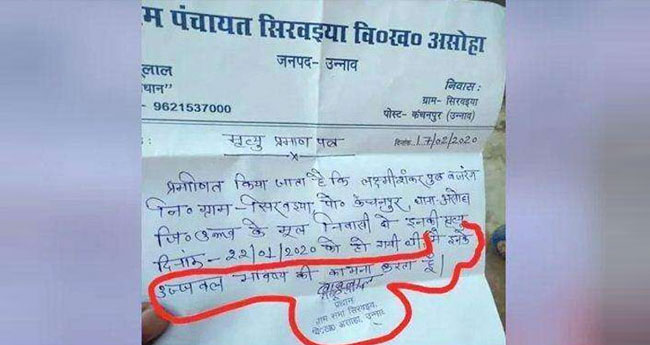 म पंचायत सिरवइया वि०ख० असोहा
जनपद- उन्नाव
लाल
धान"
- 9621537000
निवास :
ग्राम- सिरवइया
पोस्ट- कंचनपुर (उन्नाव)
मृत्यु प्रमाण पत्र
दिनांक 17/02/2020
प्रमाणित किया जाता है कि लक्ष्मीशंकर पुत्र बजरंग
नि० ग्राम- सिरवइया पो० कंचनपुर, थाना- असोहा
जि० उन्नाव के मूल निवासी थे इनकी मृत्यु
दिनांक- 22/01/2020 को हो गयी थी मै इनके
उज्जवल भविष्य की कामना करता हूँ।
प्रधान
ग्राम सभा सिरवइया
वि०ख० असोहा, उन्नाव